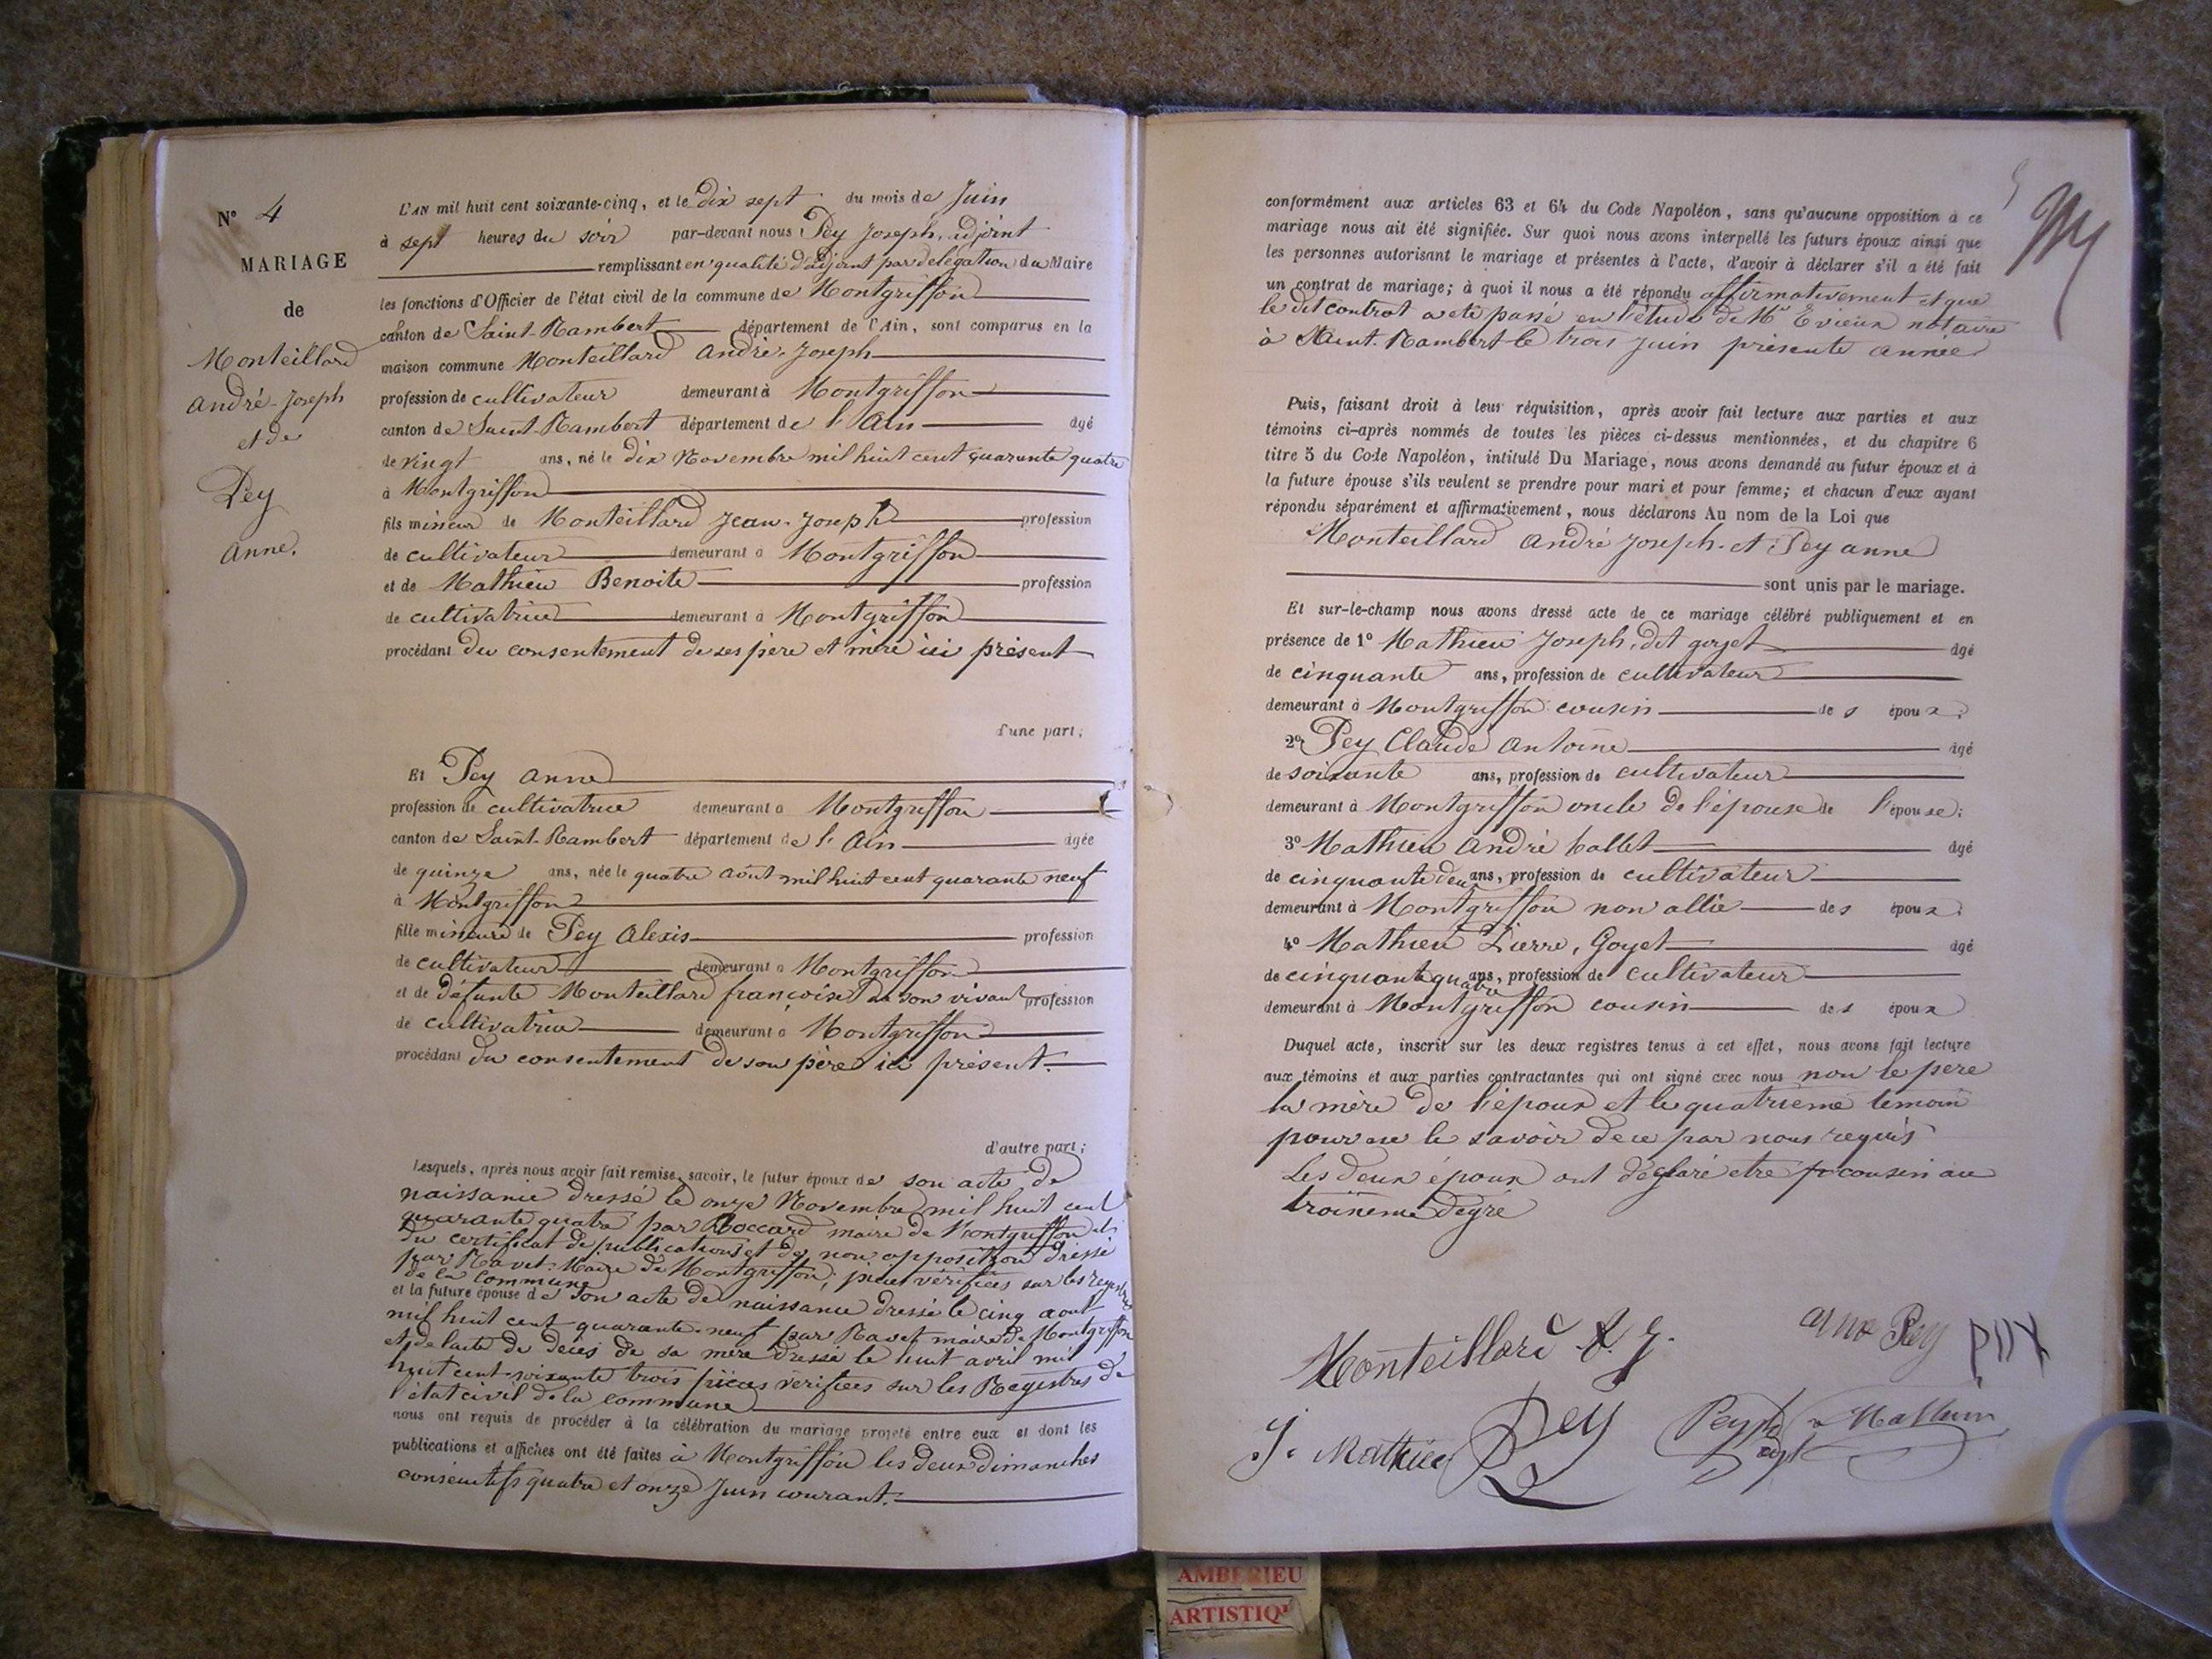 N° 4
MARIAGE
de
Monteillard
André-Joseph
et de
Pey
Anne.
L'AN mil huit cent soixante-cinq, et le dix sept du mois de Juin
à sept heures du soir par-devant nous Pey Joseph, adjoint
remplissant en qualité d'adjoint par délégation du Maire
les fonctions d'Officier de l'état civil de la commune de Montgriffon
canton de Saint-Rambert département de l'Ain, sont comparus en la
maison commune Monteillard André-Joseph
profession de cultivateur demeurant à Montgriffon
canton de Saint-Rambert département de l'Ain âgé
de vingt ans, né le dix Novembre mil huit cent quarante quatre
à Montgriffon
fils mineur de Monteillard Jean-Joseph profession
de cultivateur demeurant à Montgriffon
et de Mathieu Benoite profession
de cultivatrice demeurant à Montgriffon
procédant du consentement de ses père et mère ici présent
d'une part;
Et Pey Anne
profession de cultivatrice demeurant à Montgriffon
canton de Saint-Rambert département de l'Ain âgée
de quinze ans, née le quatre août mil huit cent quarante neuf
à Montgriffon
fille mineure de Pey Alexis profession
de cultivateur demeurant à Montgriffon
et de défunte Monteillard françoise de son vivant profession
de cultivatrice demeurant à Montgriffon
procédant du consentement de son père ici présent.
d'autre part;
Lesquels, après nous avoir fait remise, savoir, le futur époux de son acte de
naissance dressé le onze Novembre mil huit cent
quarante quatre par Boccard maire de Montgriffon et
du certificat de publications et de non opposition dressé
par Ravet Maire de Montgriffon; pièces vérifiées sur les registres
de la commune
et la future épouse de son acte de naissance dressé le cinq aout
mil huit cent quarante-neuf par Ravet maire de Montgriffon
et de l'acte de décès de sa mère dressé le huit avril mil
huit cent soixante trois pièces verifiées sur les Registres de
l'état civil de la commune
nous ont requis de procéder à la célébration du mariage projeté entre eux et dont les
publications et affiches ont été faites à Montgriffon les deux dimanches
consécutifs quatre et onze Juin courant.
conformément aux articles 63 et 64 du Code Napoléon, sans qu'aucune opposition à ce
mariage nous ait été signifiée. Sur quoi nous avons interpellé les futurs époux ainsi que
les personnes autorisant le mariage et présentes à l'acte, d'avoir à déclarer s'il a été fait
un contrat de mariage; à quoi il nous a été répondu affirmativement et que
le dit contrat a été passé en l'étude de Me Evieux notaire
à Saint-Rambert le trois juin présente année
Puis, faisant droit à leur réquisition, après avoir fait lecture aux parties et aux
témoins ci-après nommés de toutes les pièces ci-dessus mentionnées, et du chapitre 6
titre 5 du Code Napoléon, intitulé Du Mariage, nous avons demandé au futur époux et à
la future épouse s'ils veulent se prendre pour mari et pour femme; et chacun d'eux ayant
répondu séparément et affirmativement, nous déclarons Au nom de la Loi que
Monteillard André Joseph et Pey anne
sont unis par le mariage.
Et sur-le-champ nous avons dressé acte de ce mariage célébré publiquement et en
présence de 1° Mathieu Joseph, dit goyet âgé
de cinquante ans, profession de cultivateur
demeurant à Montgriffon cousin des époux;
2° Pey Claude Antoine âgé
de soixante ans, profession de cultivateur
demeurant à Montgriffon oncle de l'épouse de l'épouse;
3° Mathieu André ballet âgé
de cinquante deux ans, profession de cultivateur
demeurant à Montgriffon non allié des époux;
4° Mathieu Pierre, Goyet âgé
de cinquante quatre ans, profession de cultivateur
demeurant à Montgriffon cousin des époux
Duquel acte, inscrit sur les deux registres tenus à cet effet, nous avons fait lecture
aux témoins et aux parties contractantes qui ont signé avec nous non le père
la mère de l'époux et le quatrième temoin
pour ne le savoir de ce par nous requis
Les deux époux ont déclaré etre cousin au
troisieme degré
Monteillard A. J. Pey
J. Mathieu Pey Pey Mathieu
AMBERIEU
ARTISTIQ